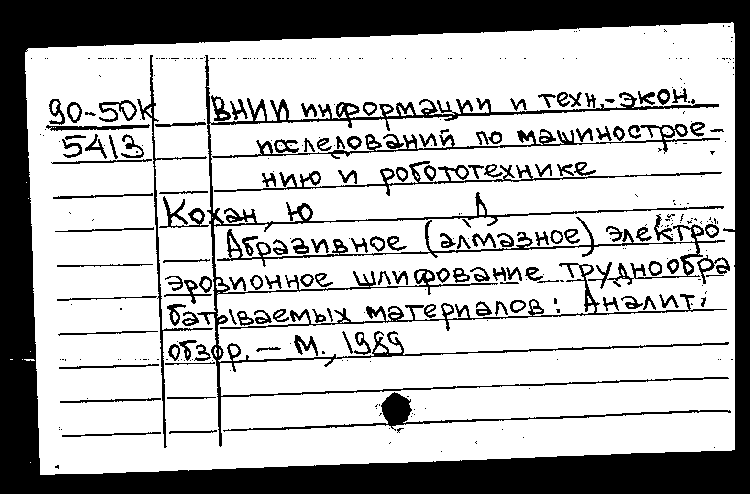 90-50К ВНИИ информации и техн.-экон.
5413 исследований по машинострое-
нию и робототехнике
Кохан, Ю Д
Абразивное (алмазное) электро-
эрозионное шлифование труднообра
батываемых материалов: Аналит.
обзор. — М., 1989